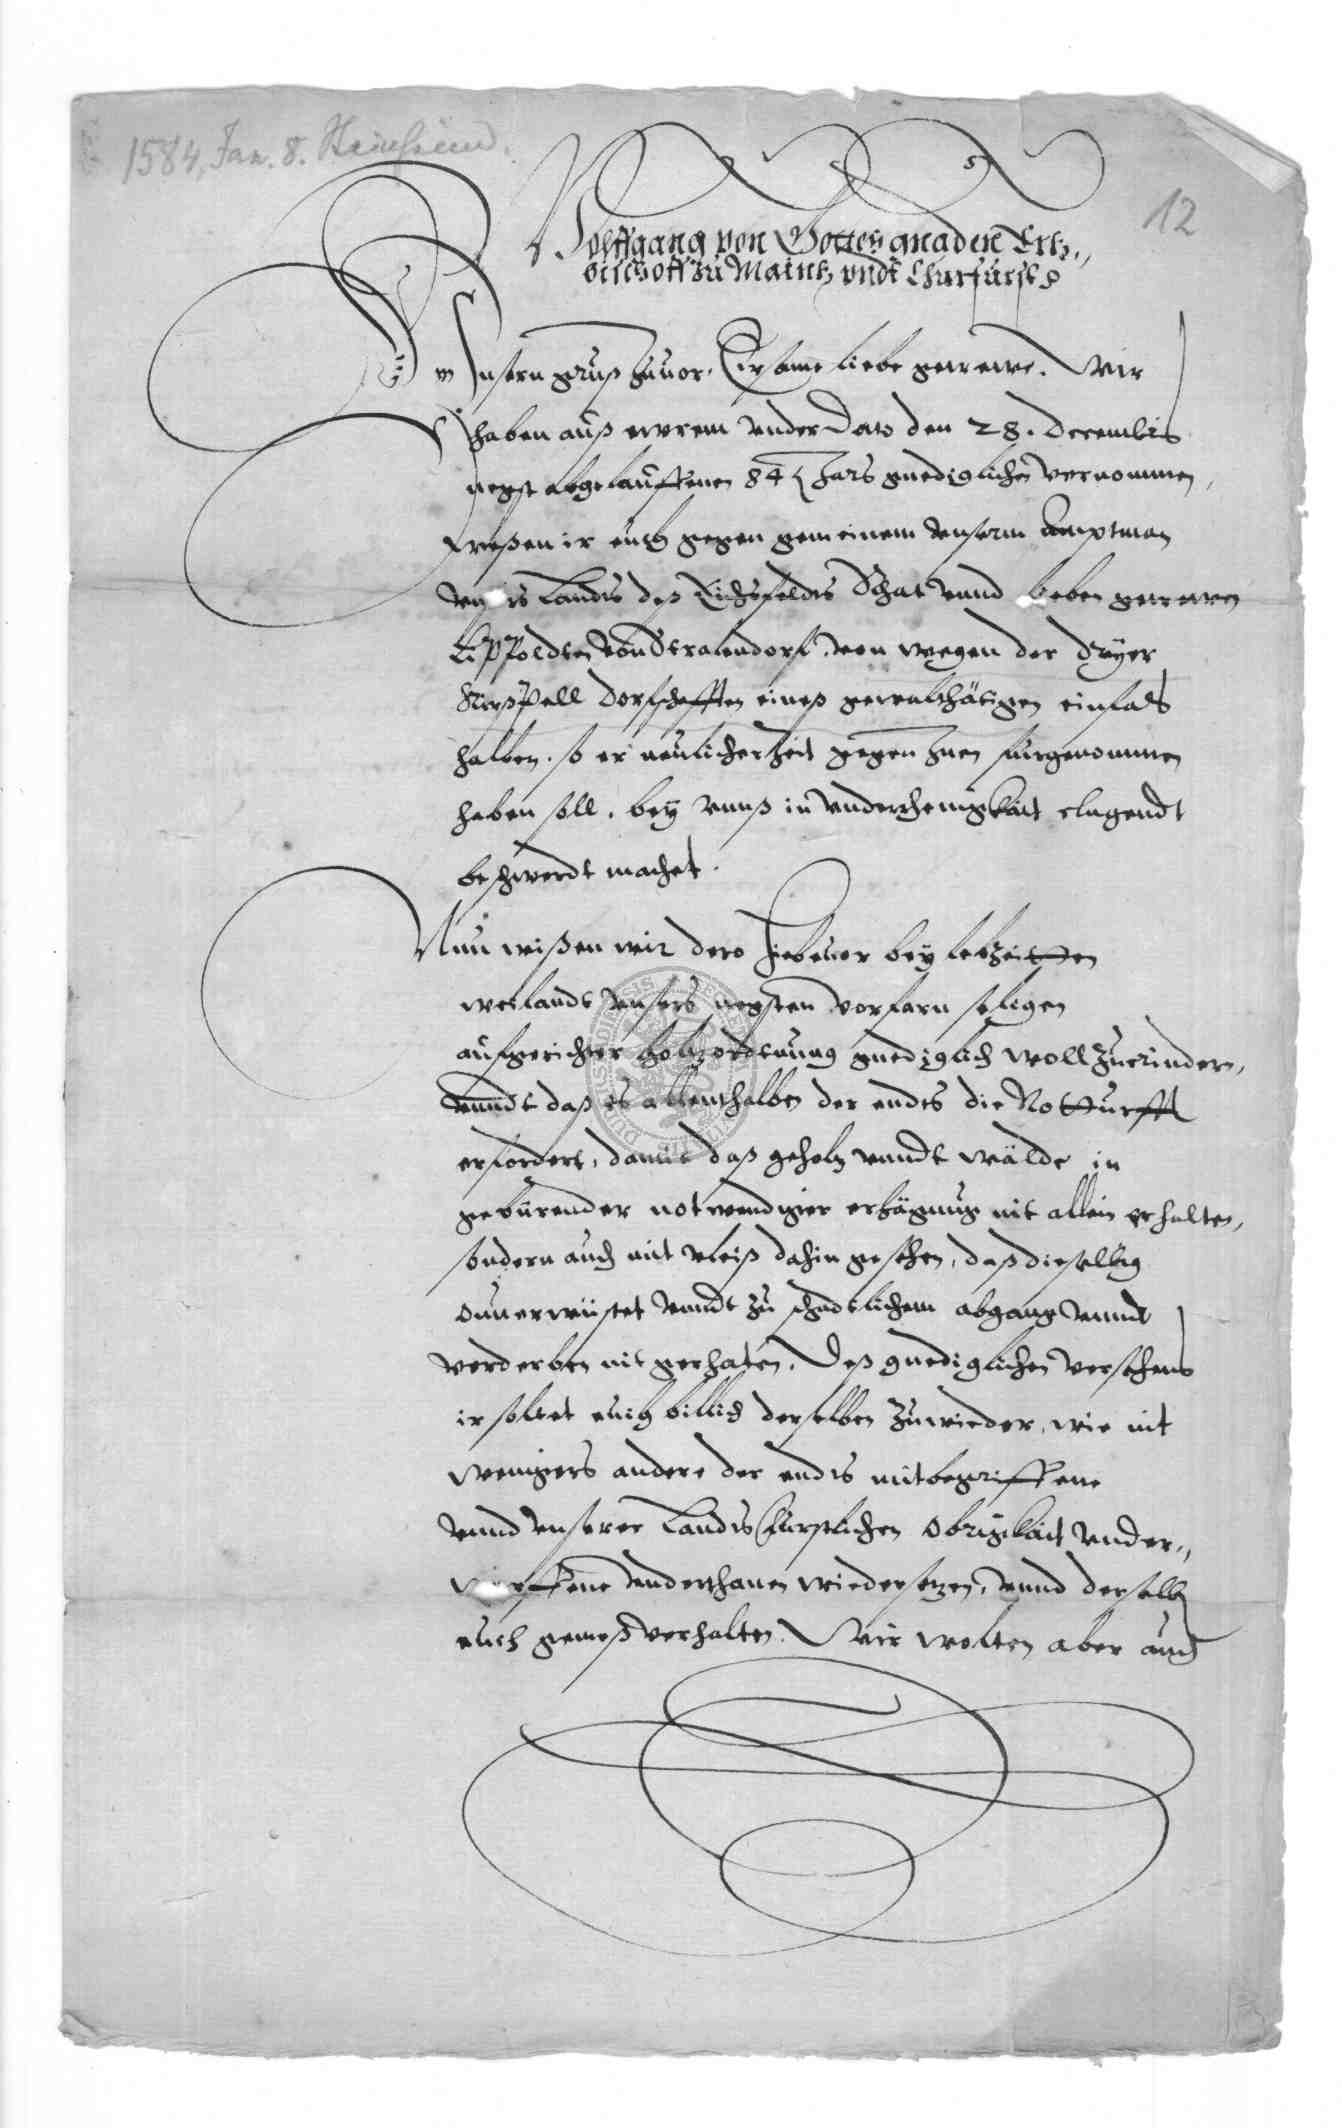 1584, Jan. 8.
12
Wolffgang von Gottes gnaden Ertz„
bischoff zu Maintz vndt Churfürst
Vnsern gruß zuuor, Ersame liebe getrewe. Wir
haben auß ewrem vnder Dato den 28. Decembris
negst abgelauffenen 84 Jars gnediglichen vernommen,
weßen ir euch gegen gemeinem vnserm Amptman
Landts deß Eichsfeldts Rhat vnnd lieben getrewen
Lippoldten von Stralendorf, von wegen der dryer
Kirspell Dorfschafften eines gewalthätigen einfals
halben. so er neulicher Zeit gegen Inen furgenommen
haben soll, bey vnnß in vnderthenigkait clagendt
beschwerdt machet.
Nun wißen wir dero hiebeuor bey lebzeitten
weilandt vnsers negsten vorfarn seligen
aufgerichter holzordtnung gnediglich woll zuerindern,
vnndt daß es allenthalben der endts die Notturfft
erfordert, damit daß geholz vnndt wälde in
geburender notwendiger nit allein erhalten,
sondern auch mit vleiß dahin gesehen, daß dieselbig
onuerwüstet vnndt zu schadtlichem abgang vnndt
verderben nit gerhaten. Deß gnediglichen versehens
ir soltet euch billich derselben zuwieder, wie nit
wenigers andere der endts mitbegriffene
vnnd vnserer Landtsfurstlichen Obrigkait vnder„
worffene vnderthanen wiedersetzen, vnnd derselben
euch gemeß verhalten. Wir wolten aber auch